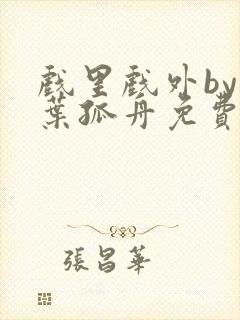 戲里戲外by
葉孤舟免費
張昌華